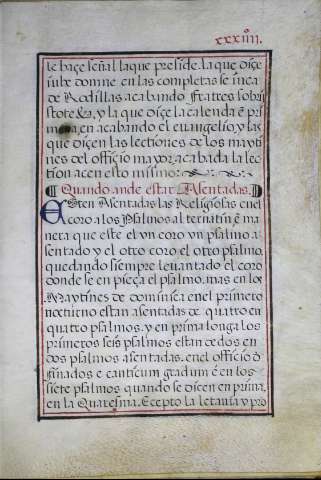 xxxiiii.
le haçe señal la que preside. la que diçe
iube domne en las completas se inca
de Rodillas acabando fratres sobrij
estote &a, y la que diçe la calenda è pri
ma, en acabando el euangelio, y las
que diçen las lectiones de los mayti
nes del officio mayor, acabada la lec
tion açen esto mismo:
Quando an de estar Asentadas.
Esten Asentadas las Religiosas en el
coro a los Psalmos alternatim è ma
nera que este el vn coro vn psalmo a
sentado y el otro coro el otro psalmo,
quedando siempre leuantado el coro
donde se empieça el psalmo. mas en los
Maytines de dominica en el primero
nocturno estan asentadas de quatro en
quatro psalmos. y en prima longa los
primeros seis psalmos estan de dos en
dos psalmos asentadas. en el officio d
finados e canticum gradum è en los
siete psalmos quando se dicen en prima,
en la Quaresma. Ecepto la letania y pro